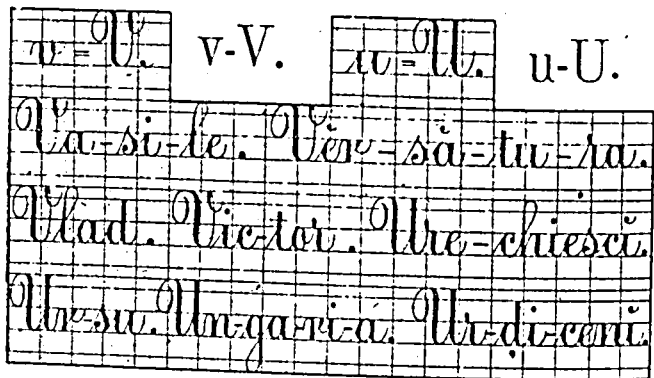 v-V. v-V. u-U. u-U.
Va-si-le. Vĕr-să-tu-ra.
Vlad. Vic-tor. Ure-chiescĭ.
Ur-su. Un-ga-ri-a. Ur-di-cenĭ.